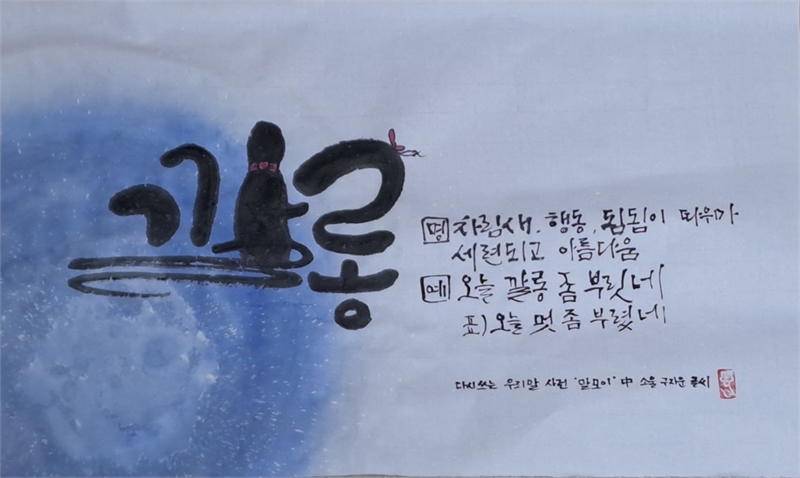 깔롱
명 차림새, 행동, 됨됨이 따위가
세련되고 아름다움
예 오늘 깔롱 좀 부릿네
표)오늘 멋 좀 부렸네
다시쓰는 우리말 사전 '말모이' 中 소울 구자운 글씨